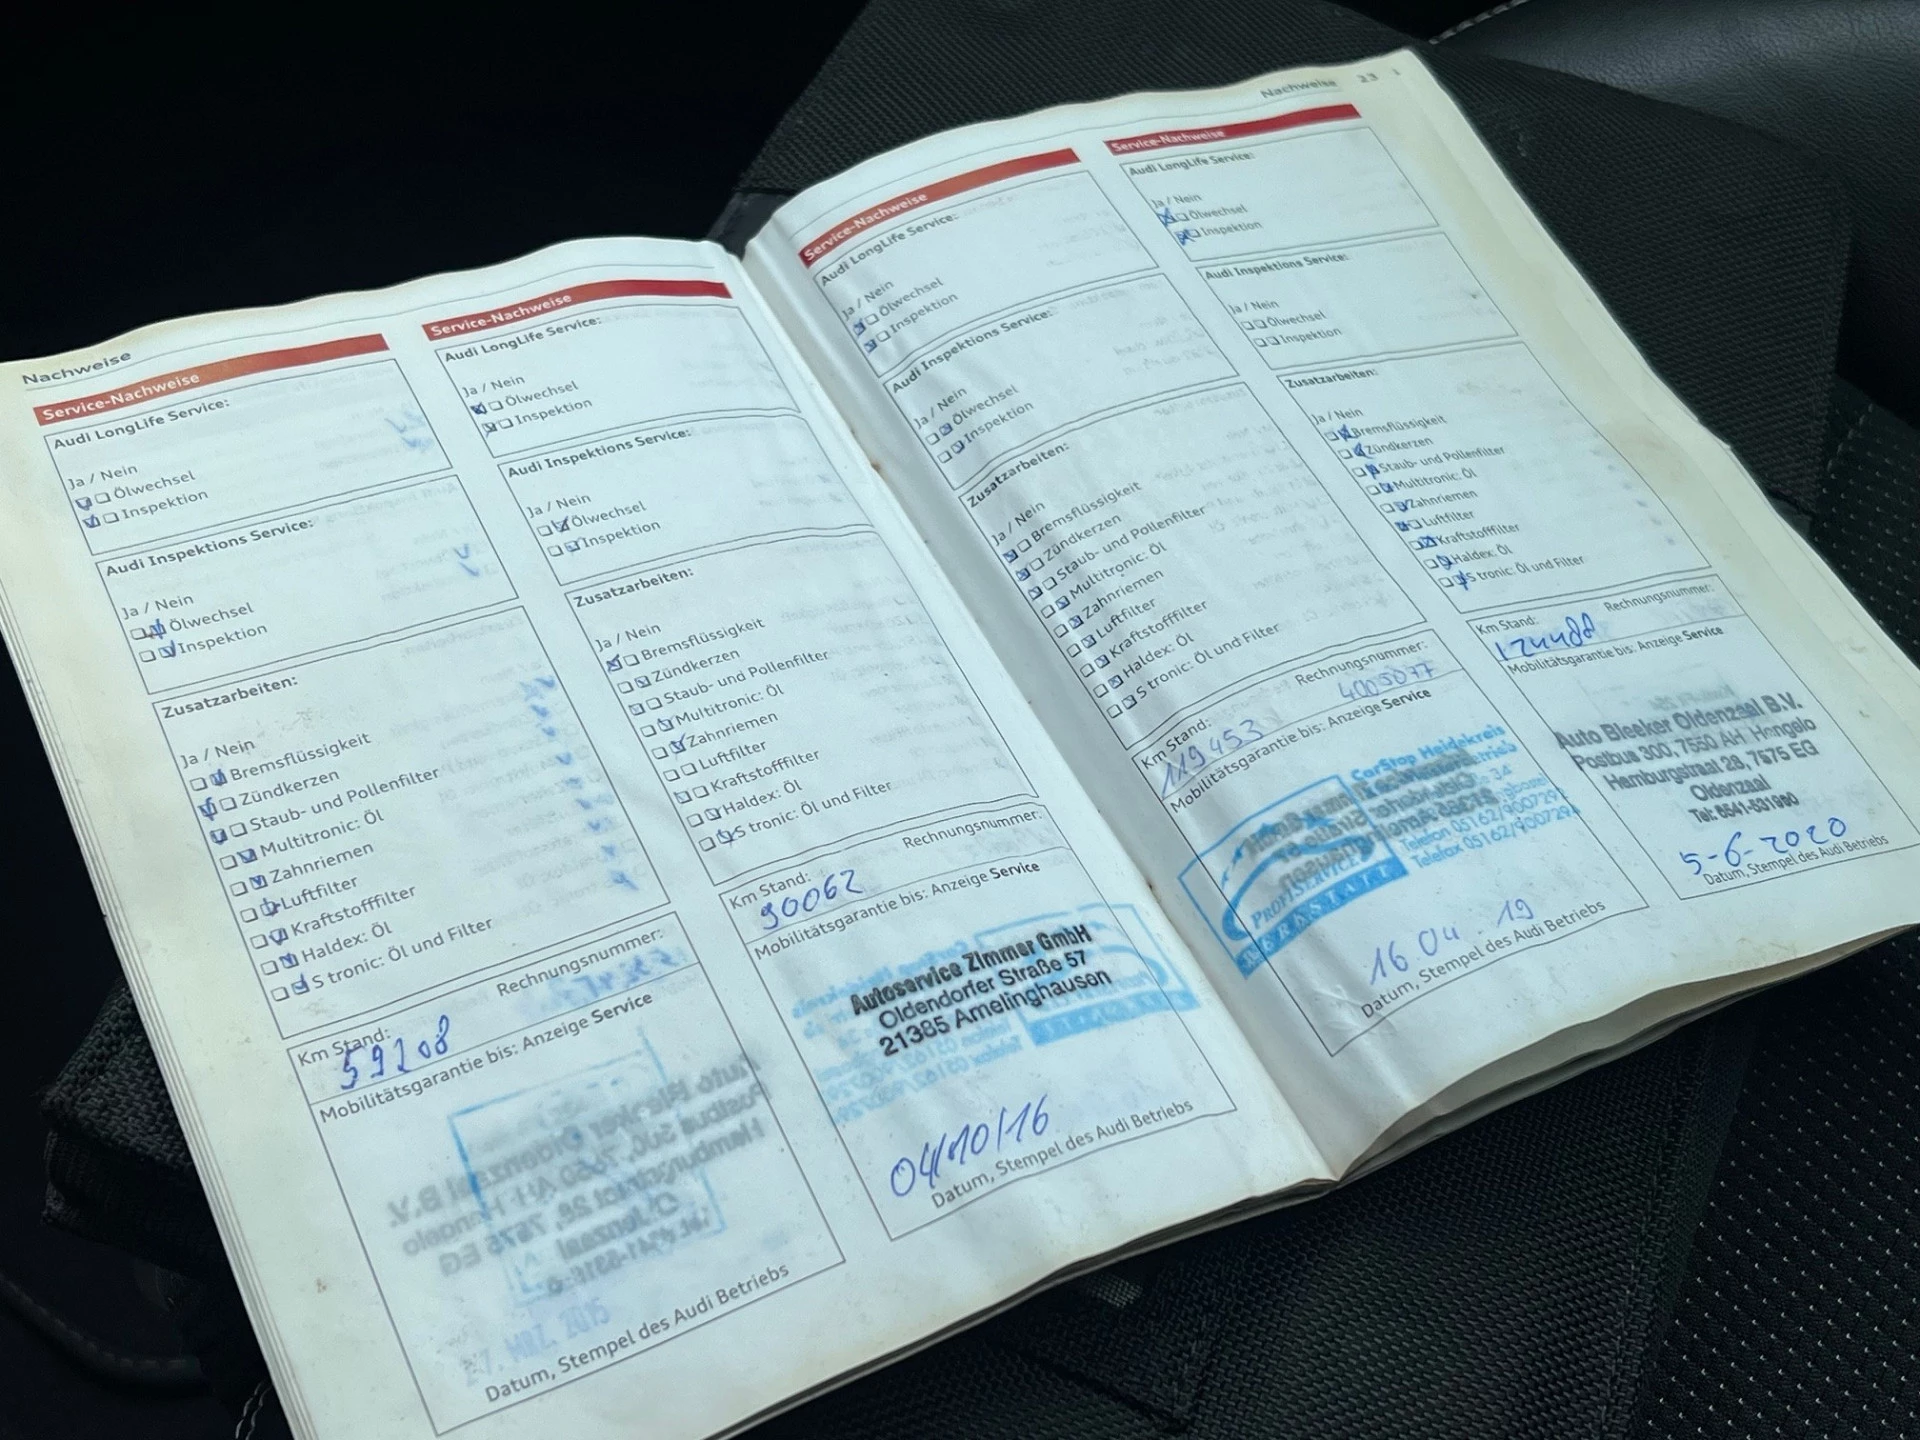 Nachweise
Service-Nachweise
Audi LongLife Service:
Ja / Nein
Ölwechsel
Inspektion
Audi Inspektions Service:
Ja / Nein
Ölwechsel
Inspektion
Zusatzarbeiten:
Ja / Nein
Bremsflüssigkeit
Zündkerzen
Staub- und Pollenfilter
Multitronic: Öl
Zahnriemen
Luftfilter
Kraftstofffilter
Haldex: Öl
S tronic: Öl und Filter
Km Stand: Rechnungsnummer:
59208
Mobilitätsgarantie bis: Anzeige Service
Datum, Stempel des Audi Betriebs
Service-Nachweise
Audi LongLife Service:
Ja / Nein
Ölwechsel
Inspektion
Audi Inspektions Service:
Ja / Nein
Ölwechsel
Inspektion
Zusatzarbeiten:
Ja / Nein
Bremsflüssigkeit
Zündkerzen
Staub- und Pollenfilter
Multitronic: Öl
Zahnriemen
Luftfilter
Kraftstofffilter
Haldex: Öl
S tronic: Öl und Filter
Km Stand: Rechnungsnummer:
90062
Mobilitätsgarantie bis: Anzeige Service
Autoservice Zimmer GmbH
Oldendorfer Straße 57
21385 Amelinghausen
04/10/16
Datum, Stempel des Audi Betriebs
Service-Nachweise
Audi LongLife Service:
Ja / Nein
Ölwechsel
Inspektion
Audi Inspektions Service:
Ja / Nein
Ölwechsel
Inspektion
Zusatzarbeiten:
Ja / Nein
Bremsflüssigkeit
Zündkerzen
Staub- und Pollenfilter
Multitronic: Öl
Zahnriemen
Luftfilter
Kraftstofffilter
Haldex: Öl
S tronic: Öl und Filter
Km Stand: Rechnungsnummer:
119453 4005077
Mobilitätsgarantie bis: Anzeige Service
CarStop Heidekreis
Telefon 05162/900729
Telefax 05162/900729
PROFISERVICE
WERKSTATT
16.04.19
Datum, Stempel des Audi Betriebs
Nachweise 23
Service-Nachweise
Audi LongLife Service:
Ja / Nein
Ölwechsel
Inspektion
Audi Inspektions Service:
Ja / Nein
Ölwechsel
Inspektion
Zusatzarbeiten:
Ja / Nein
Bremsflüssigkeit
Zündkerzen
Staub- und Pollenfilter
Multitronic: Öl
Zahnriemen
Luftfilter
Kraftstofffilter
Haldex: Öl
S tronic: Öl und Filter
Km Stand: Rechnungsnummer:
Mobilitätsgarantie bis: Anzeige Service
Auto Bleeker Oldenzaal B.V.
Postbus 300, 7550 AH Hengelo
Hamburgstraat 28, 7575 EG
Oldenzaal
Tel: 0541-531990
5-6-2020
Datum, Stempel des Audi Betriebs